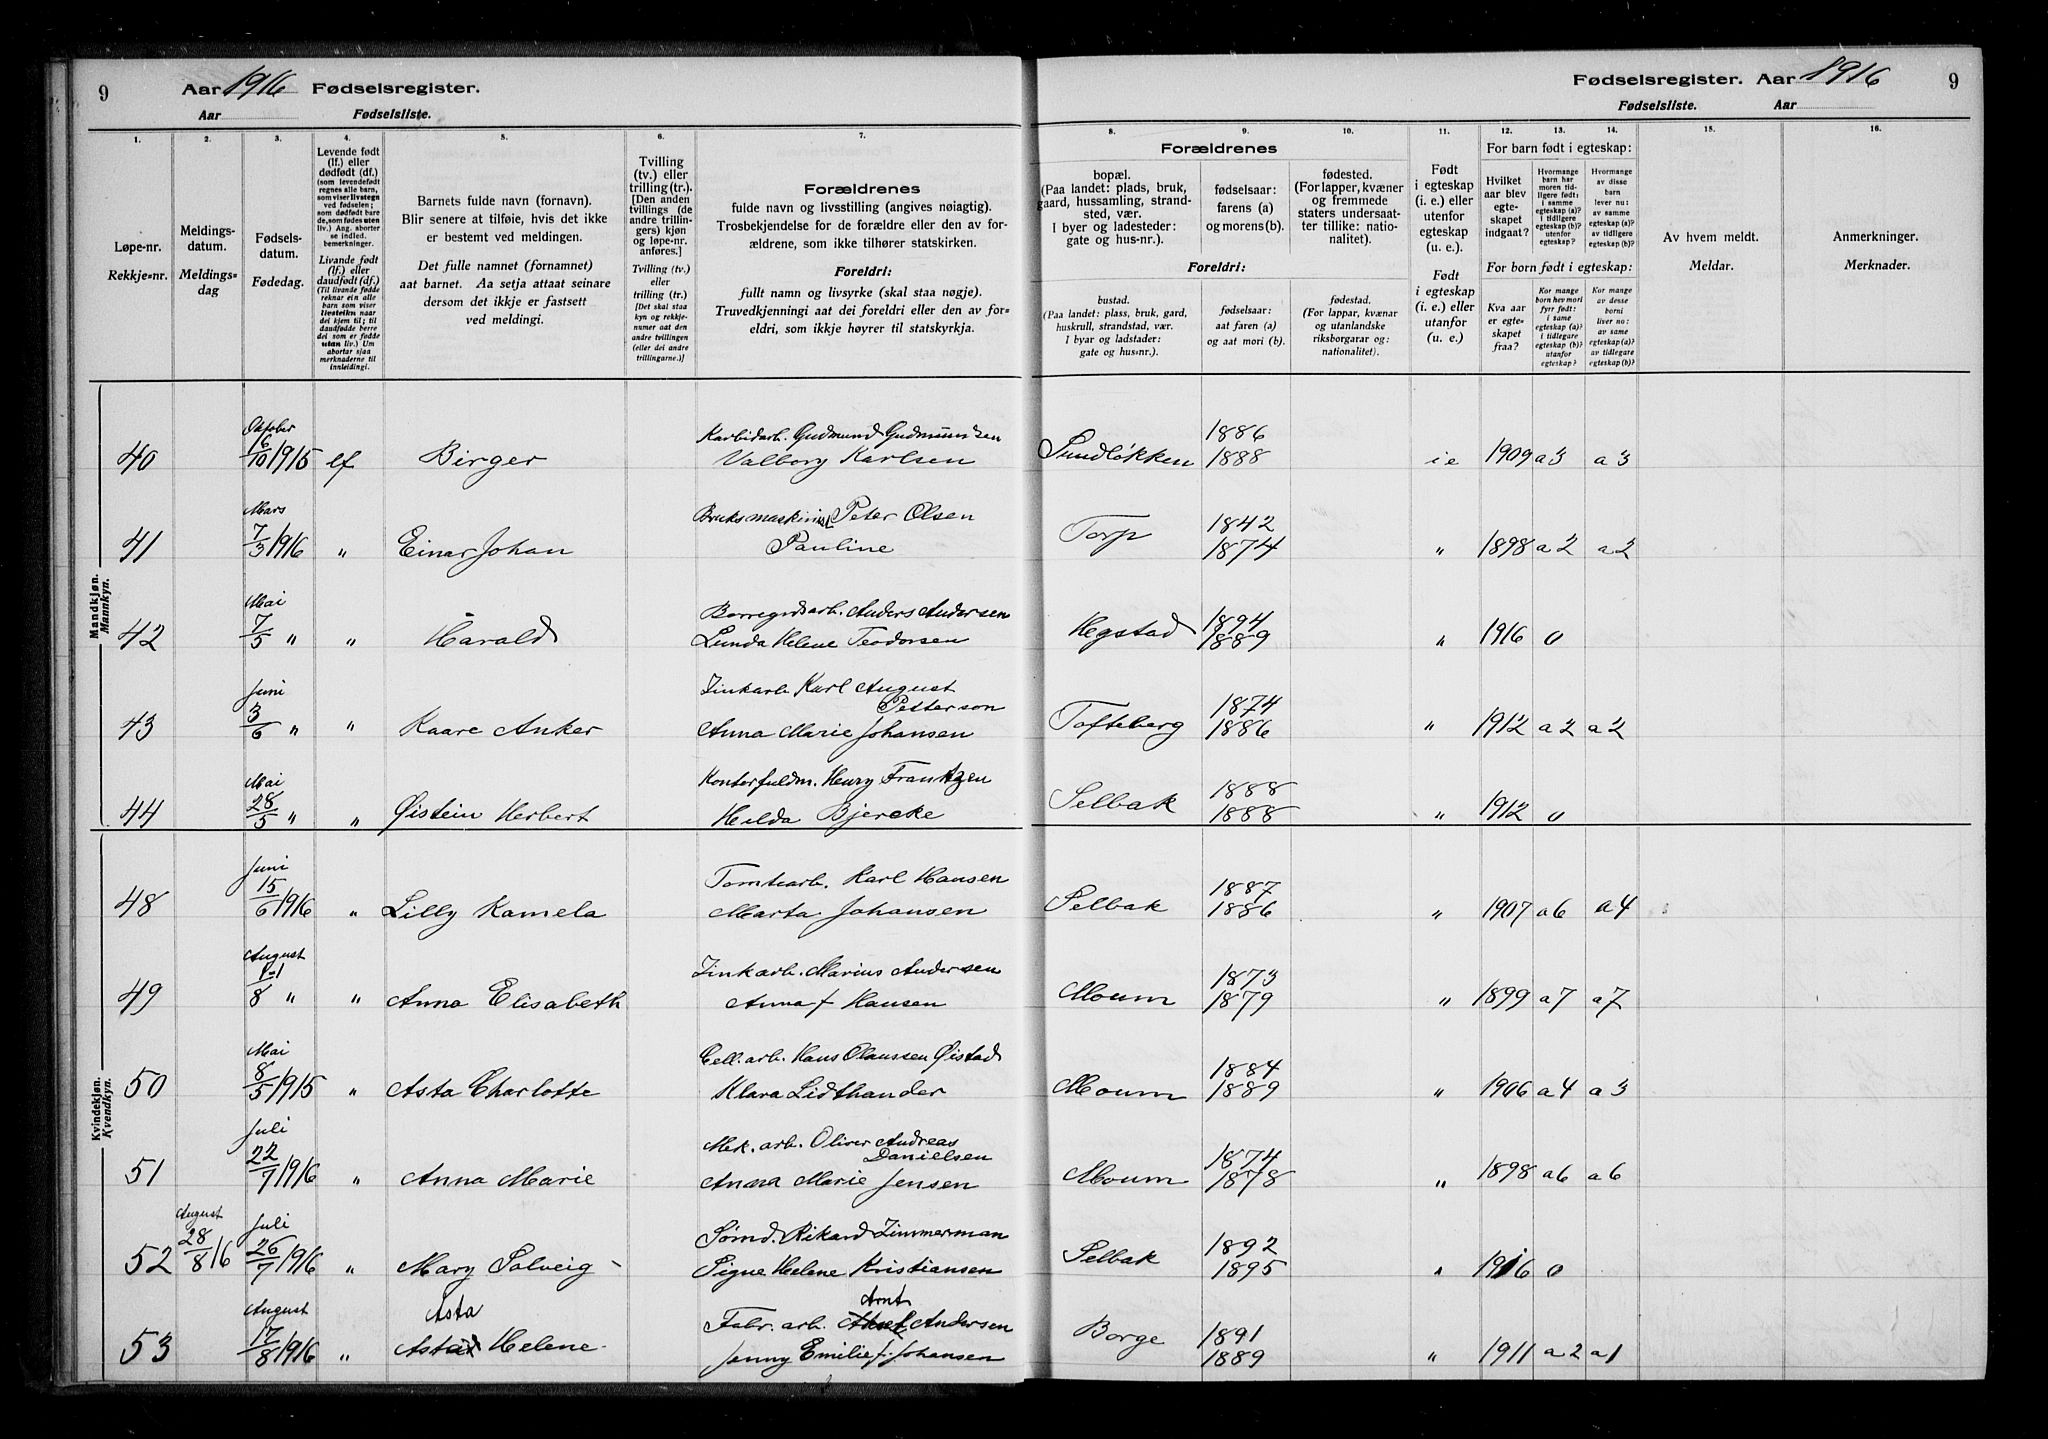 9 Aar 1916 Fødselsregister.
Aar Fødselsliste.
1. 2. 3. 4. 5. 6. 7.
Løpe-nr.
Rekkje=nr.
Meldings-
datum.
Meldings=
dag
Fødsels-
datum.
Fødedag.
Levende født
(lf.) eller
dødfødt (df.)
(som levendefødt
regnes alle barn,
som viser livstegn
ved fødselen;
som dødfødt bare
de, som fødes uten
liv.) Ang. aborter
se indled.
bemerkninger.
Livande født
(lf.) eller
daudfødt (df.)
(Til livande fødde
reknar ein alle
barn som viser
livsteikn naar
dei kjem til; til
daudfødde berre
dei som er fødde
utan liv.) Um
abortar sjaa
merknaderne til
innleidingi.
Barnets fulde navn (fornavn).
Blir senere at tilføie, hvis det ikke
er bestemt ved meldingen.
Det fulle namnet (fornamnet)
aat barnet. Aa setja attaat seinare
dersom det ikkje er fastsett
ved meldingi.
Tvilling
(tv.) eller
trilling (tr.).
[Den anden
tvillings (de
andre trillin-
gers) kjøn
og løpe-nr.
anføres.]
Tvilling (tv.)
eller
trilling (tr.)
[Det skal staa
kyn og rekkje-
numer aat den
andre tvillingen
(eller dei andre
trillingarne.)]
Forældrenes
fulde navn og livsstilling (angives nøiagtig).
Trosbekjendelse for de forældre eller den av for-
ældrene, som ikke tilhører statskirken.
Foreldri:
fullt namn og livsyrke (skal staa nøgje).
Truvedkjenningi aat dei foreldri eller den av for=
eldri, som ikkje høyrer til statskyrkja.
Fødselsregister. Aar 1916 9
Fødselsliste. Aar
8. 9. 10. 11. 12. 13. 14. 15. 16.
Forældrenes
bopæl.
(Paa landet: plads, bruk,
gaard, hussamling, strand-
sted, vær.
I byer og ladesteder:
gate og hus-nr.).
fødselsaar:
farens (a)
og morens (b).
fødested.
(For lapper, kvæner
og fremmede
staters undersaat-
ter tillike: natio-
nalitet).
Foreldri:
bustad.
(Paa landet: plass, bruk, gard,
huskrull, strandstad, vær.
I byar og ladstader:
gate og hus=nr.).
fødselsaar:
aat faren (a)
og aat mori (b).
fødestad.
(For lappar, kvænar
og utanlandske
riksborgarar og:
nationalitet).
Født
i egteskap
(i. e.) eller
utenfor
egteskap
(u. e.).
Født
i egteskap
(i. e.) eller
utanfor
(u. e.).
For barn født i egteskap:
Hvilket
aar blev
egte-
skapet
indgaat?
Hvormange
barn har
moren tid-
ligere født:
i samme
egteskap (a)?
i tidligere
egteskap (b)?
utenfor
egteskap?
Hvormange
av disse
barn
lever nu:
av samme
egteskap (a)?
av tidligere
egteskap (b)?
For born født i egteskap:
Kva aar
er egte-
skapet
fraa?
Kor mange
born hev mori
fyrr født:
i same
egteskap (a)?
i tidlegare
egteskap (b)?
utanfor
egteskap?
Kor mange
av desse
borni
liver no:
av same
egteskap (a)?
av tidlegare
egteskap (b)?
Av hvem meldt.
Meldar.
Anmerkninger.
Merknader.
Mandkjøn.
Mannkyn.
40 Oktober 6/10 1915 lf Birger Karbidarb. Gudmund Gudmundsen
Valborg Karlsen Sundløkken 1886 1888 i e 1909 a 3 a 3
41 Mars 7/3 1916 " Einar Johan Bruksmaskinist Peter Olsen
Pauline Torp 1842 1874 " 1898 a 2 a 2
42 Mai 7/5 " " Harald Borregrdsarb. Anders Andersen
Lunda Helene Teodorsen Hegstad 1894 1889 " 1916 0
43 Juni 3/6 " " Kaare Anker Zinkarb. Karl August
Petterson
Anna Marie Johansen Tofteberg 1874 1886 " 1912 a 2 a 2
44 Mai 28/5 " " Øistein Herbert Kontorfuldm. Henry Frantzen
Hilda Bjercke Selbak 1888 1888 " 1912 0
Kvindekjøn.
Kvendkyn.
48 Juni 15/6 1916 " Lilly Kamela Tomtearb. Karl Hansen
Marta Johansen Selbak 1887 1886 " 1907 a 6 a 4
49 August 1-1/8 " " Anna Elisabeth Zinkarb. Marius Andersen
Anna f Hansen Moum 1873 1879 " 1899 a 7 a 7
50 Mai 8/5 1915 " Asta Charlotte Cell. arb. Hans Olaussen Øistad
Klara Lidthander Moum 1884 1889 " 1906 a 4 a 3
51 Juli 22/7 1916 " Anna Marie Mek. arb. Oliver Andreas
Danielsen
Anna Marie Jensen Moum 1874 1878 " 1898 a 6 a 6
52 August 28/8 16 Juli 26/7 1916 " Mary Solveig Sømd. Rikard Zimmerman
Signe Helene Kristiansen Selbak 1892 1895 " 1916 0
53 August 17/8 1916 " Asta Helene Fabr. arb. Arnt Andersen
Jenny Emilie f. Johansen Borge 1891 1889 " 1911 a 2 a 1